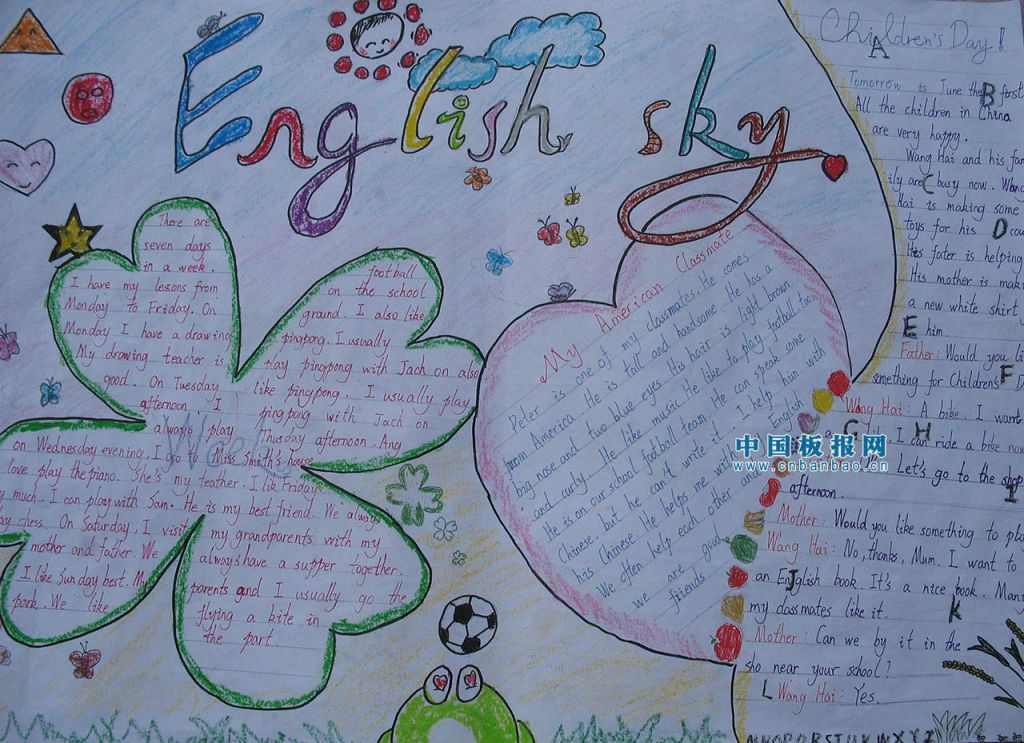 English sky
There are
seven days
in a week.
I have my lessons from
Monday to Friday. On
Monday I have a drawing
My drawing teacher is
good. On Tuesday
afternoon. I
always play
football
on the school
ground. I also like
pingpong. I usually
play pingpong with Jach on also
like pingpong. I usually play
pingpong with Jach on
Thusday afternoon. Ang
on Wednesday evening, I go to Miss Smith's house
love play the piano. She's my teather. I lik Friday
much. I can play with Sam. He is my best friend. We always
chess. On Saturday, I visit my grandparents with my
mother and father. We always have a supper together.
I like Sunday best. My parents and I usually go the
park. We like flying a kite in
the part.
My American Classmate
Peter is one of my classmates. He comes
from America. He is tall and handsome. He has a
big nose and two blue eyes. His hair is light brown
and curly. He like music. He like to play football too.
He is on our school football team. He can speak some
Chinese, but he can't write it. I help him with
his Chinese. He helps me with English
We often help each other and
we are good
friends.
Children's Day!
A
Tomorrow is June the first
B
All the children in China
are very happy.
Wang Hai and his fam
ily are busy now. Wang
C
Hai is making some
toys for his cou
D
His fater is helping
His mother is mak
a new white shirt
E him.
Father: Would you li
something for Childrens D
F
Wang Hai: A bike. I want
G
H
I can ride a bike now
Let's go to the shop
I
afternoon.
Mother: Would you like something to pla
Wang Hai: No, thanks, Mum. I want to
an English book. It's a nice book. Many
J
my classmates like it.
K
Mother: Can we by it in the
sho near your school?
L Wang Hai: Yes.
MNOPQRSTUVWXYZ
中国板报网
www.cnbanbao.cn